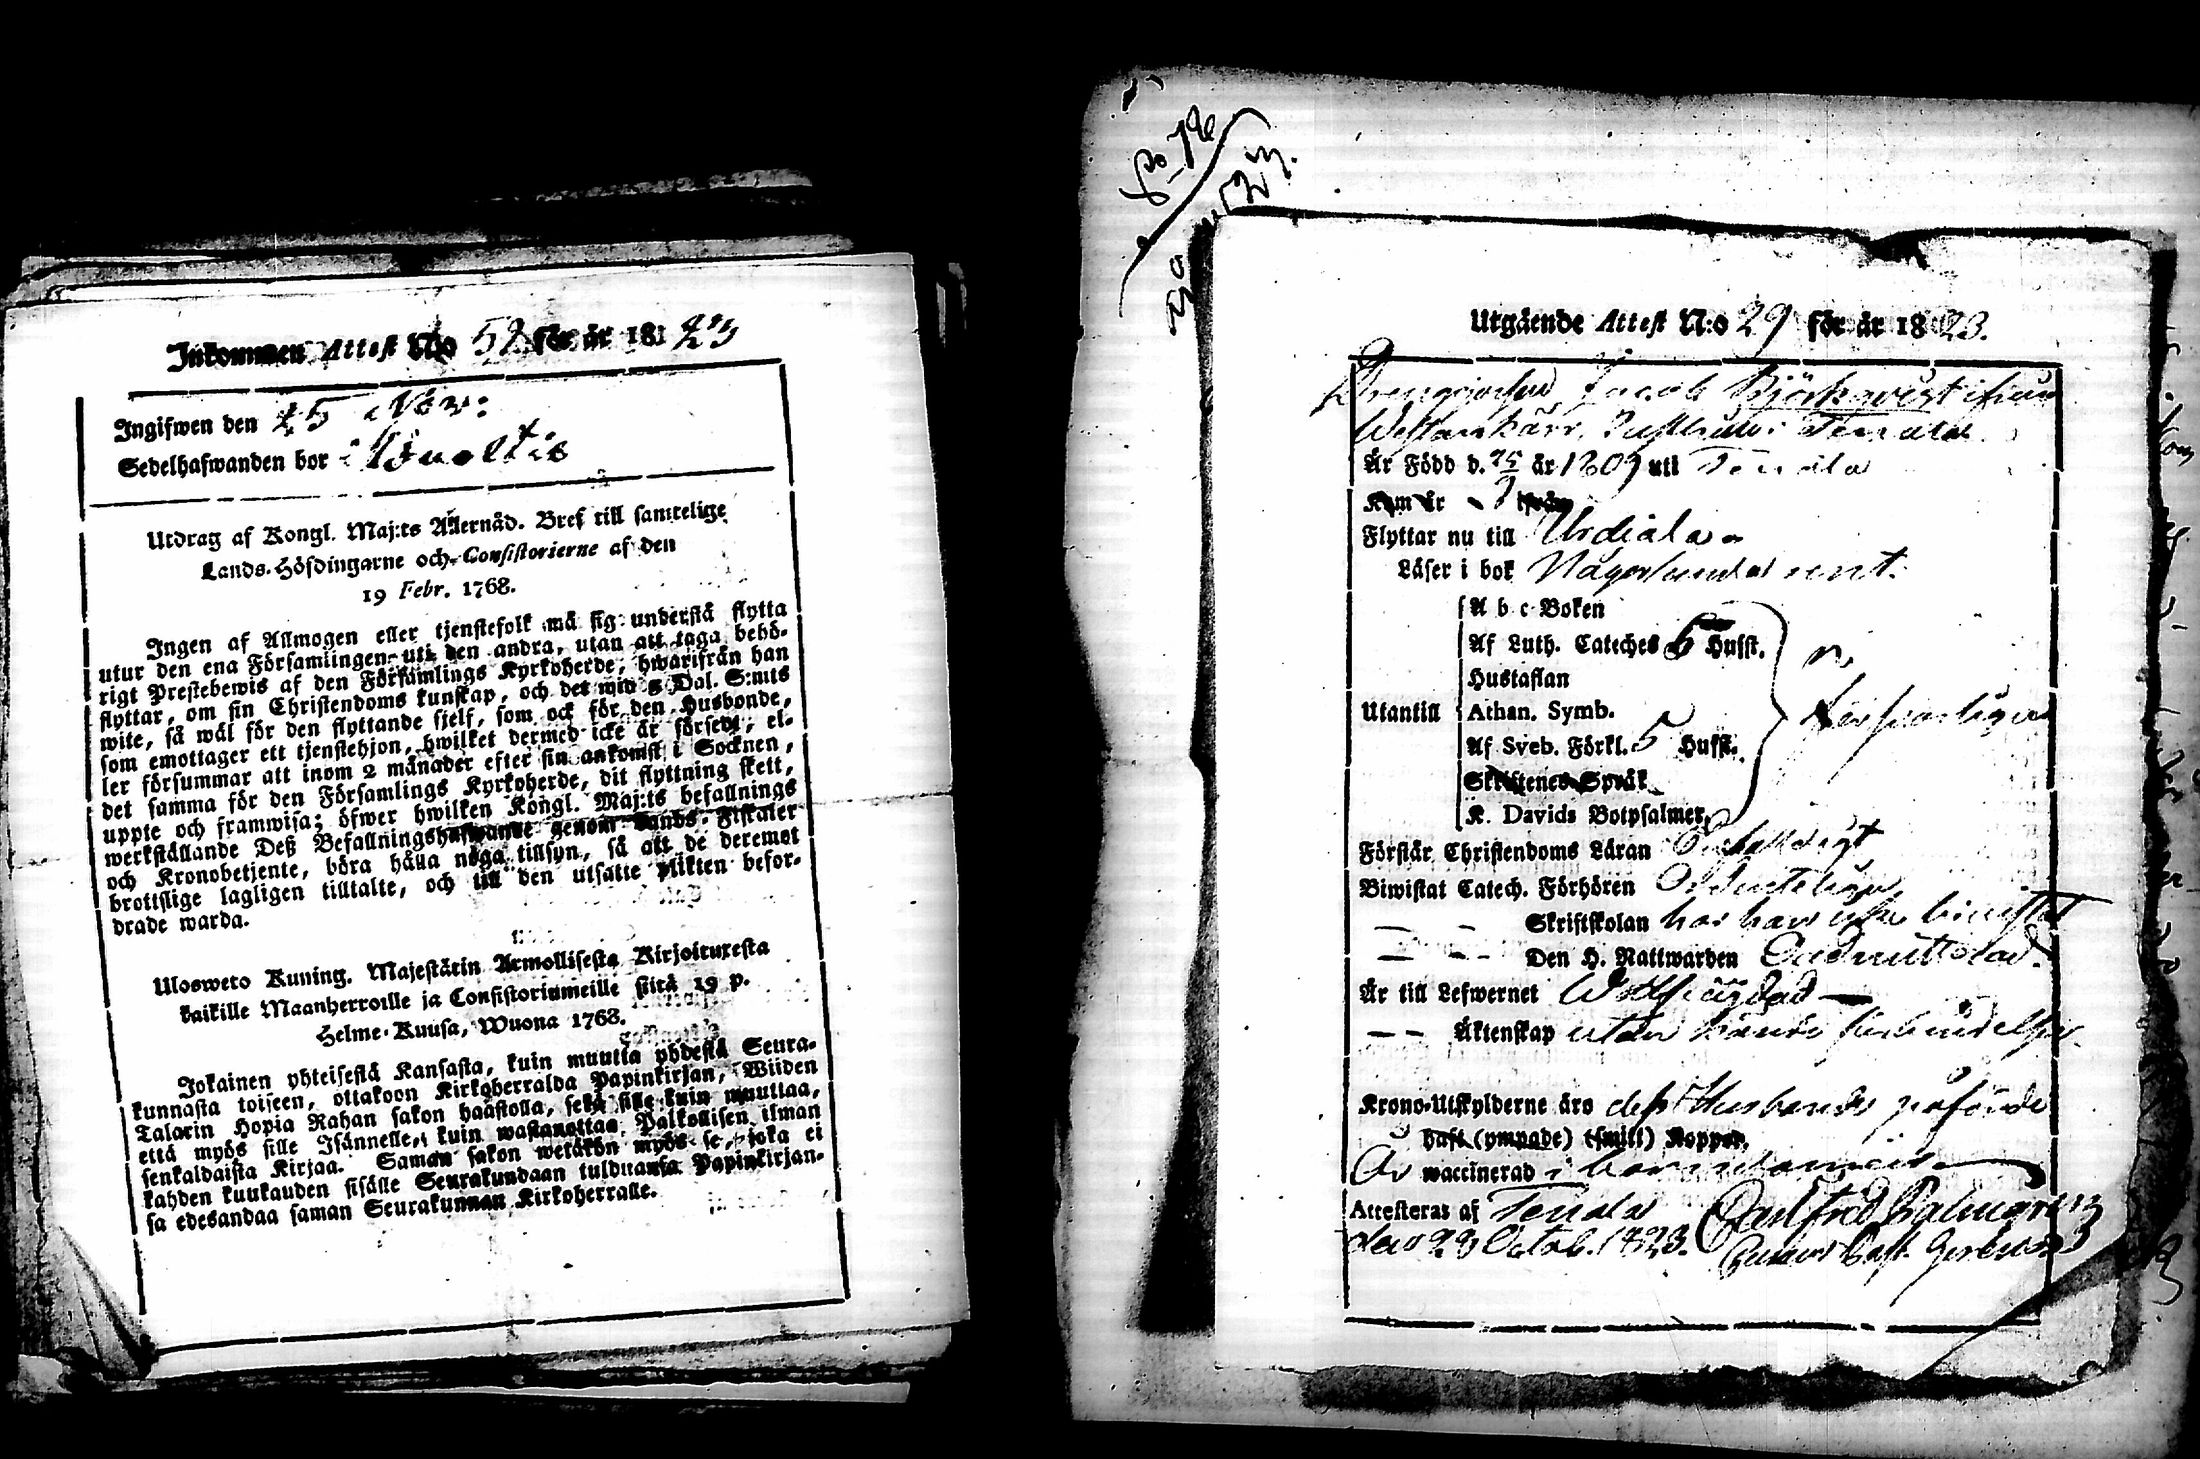 Inkommen Attest N:o 52 för år 1823
Ingifwen den 25 Nov:
Sedelhafwanden bor i
Utdrag af Kongl. Maj:ts Allernåd. Bref till samtelige
Lands-Höfdingarne och Consistorierne af den
19 Febr. 1768.
Ingen af Allmogen eller tjenstefolk må sig understå flytta
utur den ena Församlingen uti den andra, utan att taga behö-
rigt Prestebewis af den Församlings Kyrkoherde, hwarifrån han
flyttar, om sin Christendoms kunskap, och det wid 5 Dal. S:mts
wite, så wäl för den flyttande sjelf, som ock för den Husbonde,
som emottager ett tjenstehjon, hwilket dermed icke är försedt, el-
ler försummar att inom 2 månader efter sin ankomst i Socknen,
det samma för den Församlings Kyrkoherde, dit flyttning skett,
uppte och framwisa; öfwer hwilken Kongl. Maj:ts befallnings
werkställande Deß Befallningshafwande genom Lands-Fiskaler
och Kronobetjente, böra hålla noga tillsyn, så att de deremot
brottslige lagligen tilltalte, och till den utsatte plikten befor-
drade warda.
Ulosweto Kuning. Majestätin Armollisesta Kirjoituxesta
kaikille Maanherroille ja Consistoriumeille siitä 19 p.
Helme-Kuusa, Wuona 1768.
Jokainen yhteisestä Kansasta, kuin muutta yhdestä Seura-
kunnasta toiseen, ottakoon Kirkoherralda Papinkirjan, Wiiden
Talarin Hopia Rahan sakon haastolla, sekä sille kuin muuttaa,
että myös sille Isännelle, kuin wastanottaa Palkollisen ilman
senkaldaista Kirjaa. Saman sakon wetäkön myös se, joka ei
kahden kuukauden sisälle Seurakundaan tulduansa Papinkirjan-
sa edesandaa saman Seurakunnan Kirkoherralle.
Utgående Attest N:o 29 för år 1823.
Drenggossen Jacob Björkqvist ifrån
Westankärr Tenala
Är Född d. 25 år 1807 uti Tenala
Kom år ifrån
Flyttar nu till Urdiala
Läser i bok Någorlunda rent.
Utantill
A b c Boken
Af Luth. Cateches 5 Hufst.
Hustaflan
Athan. Symb.
Af Sveb. Förkl. 5 Hufst.
Skriftenes Språk
K. Davids Botpsalmer
försvarligen
Förstår Christendoms Läran Enfaldigt
Biwistat Catech. Förhören Ordenteligen
— — Skriftskolan har han icke biwistat
— — Den H. Nattwarden Oadmitterad.
Är till Lefwernet Wälfrägdad
— — Äktenskap utan kände förbindelser.
Krono-Utskylderne äro des Husbonde påförde
haft (ympade) (små) Koppor.
Är waccinerad i barndomen
Attesteras af Tenala Carl Fred Palmgren
den 23 Octob. 1823.